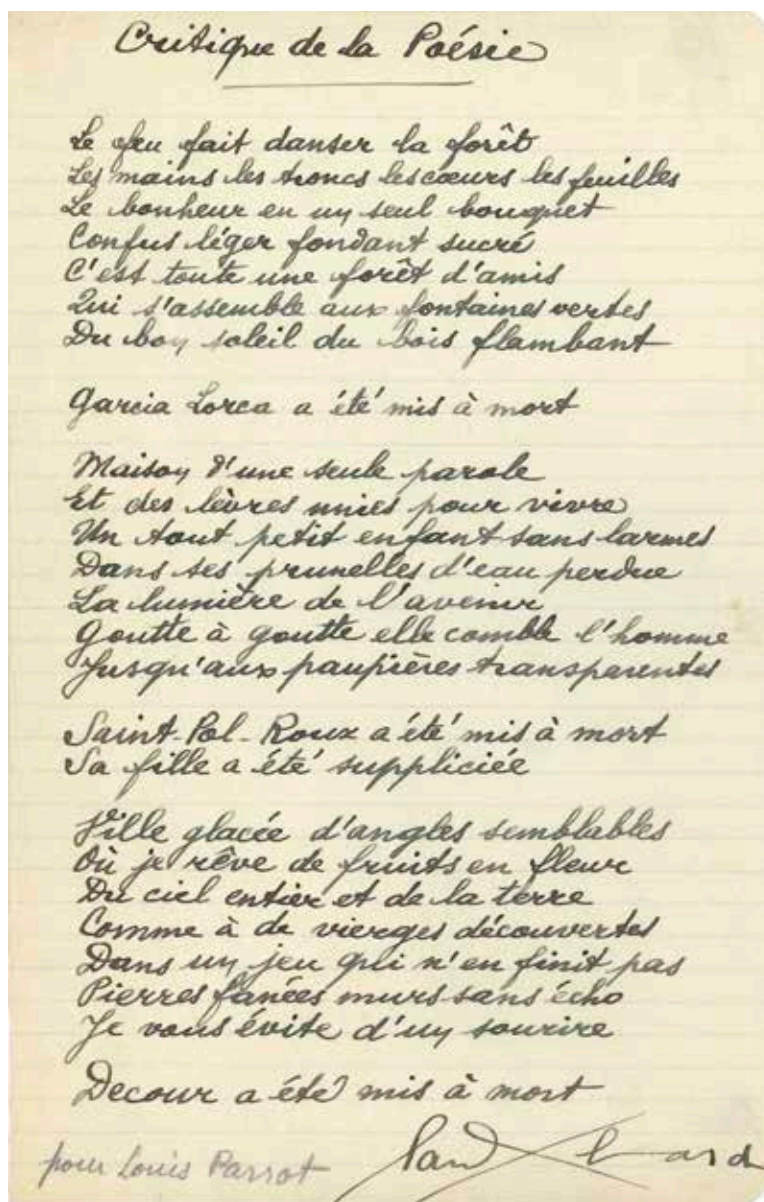 Critique de la Poésie
Le feu fait danser la forêt
Les mains les troncs les cœurs les feuilles
Le bonheur en un seul bouquet
Confus léger fondant sucré
C'est toute une forêt d'amis
Qui s'assemble aux fontaines vertes
Du bon soleil du bois flambant
Garcia Lorca a été mis à mort
Maison d'une seule parole
Et des lèvres unies pour vivre
Un tout petit enfant sans larmes
Dans ses prunelles d'eau perdue
La lumière de l'avenir
Goutte à goutte elle comble l'homme
Jusqu'aux paupières transparentes
Saint-Pol-Roux a été mis à mort
Sa fille a été suppliciée
Ville glacée d'angles semblables
Où je rêve de fruits en fleur
Du ciel entier et de la terre
Comme à de vierges découvertes
Dans un jeu qui n'en finit pas
Pierres fanées murs sans écho
Je vous évite d'un sourire
Decour a été mis à mort
pour Louis Parrot Paul Eluard